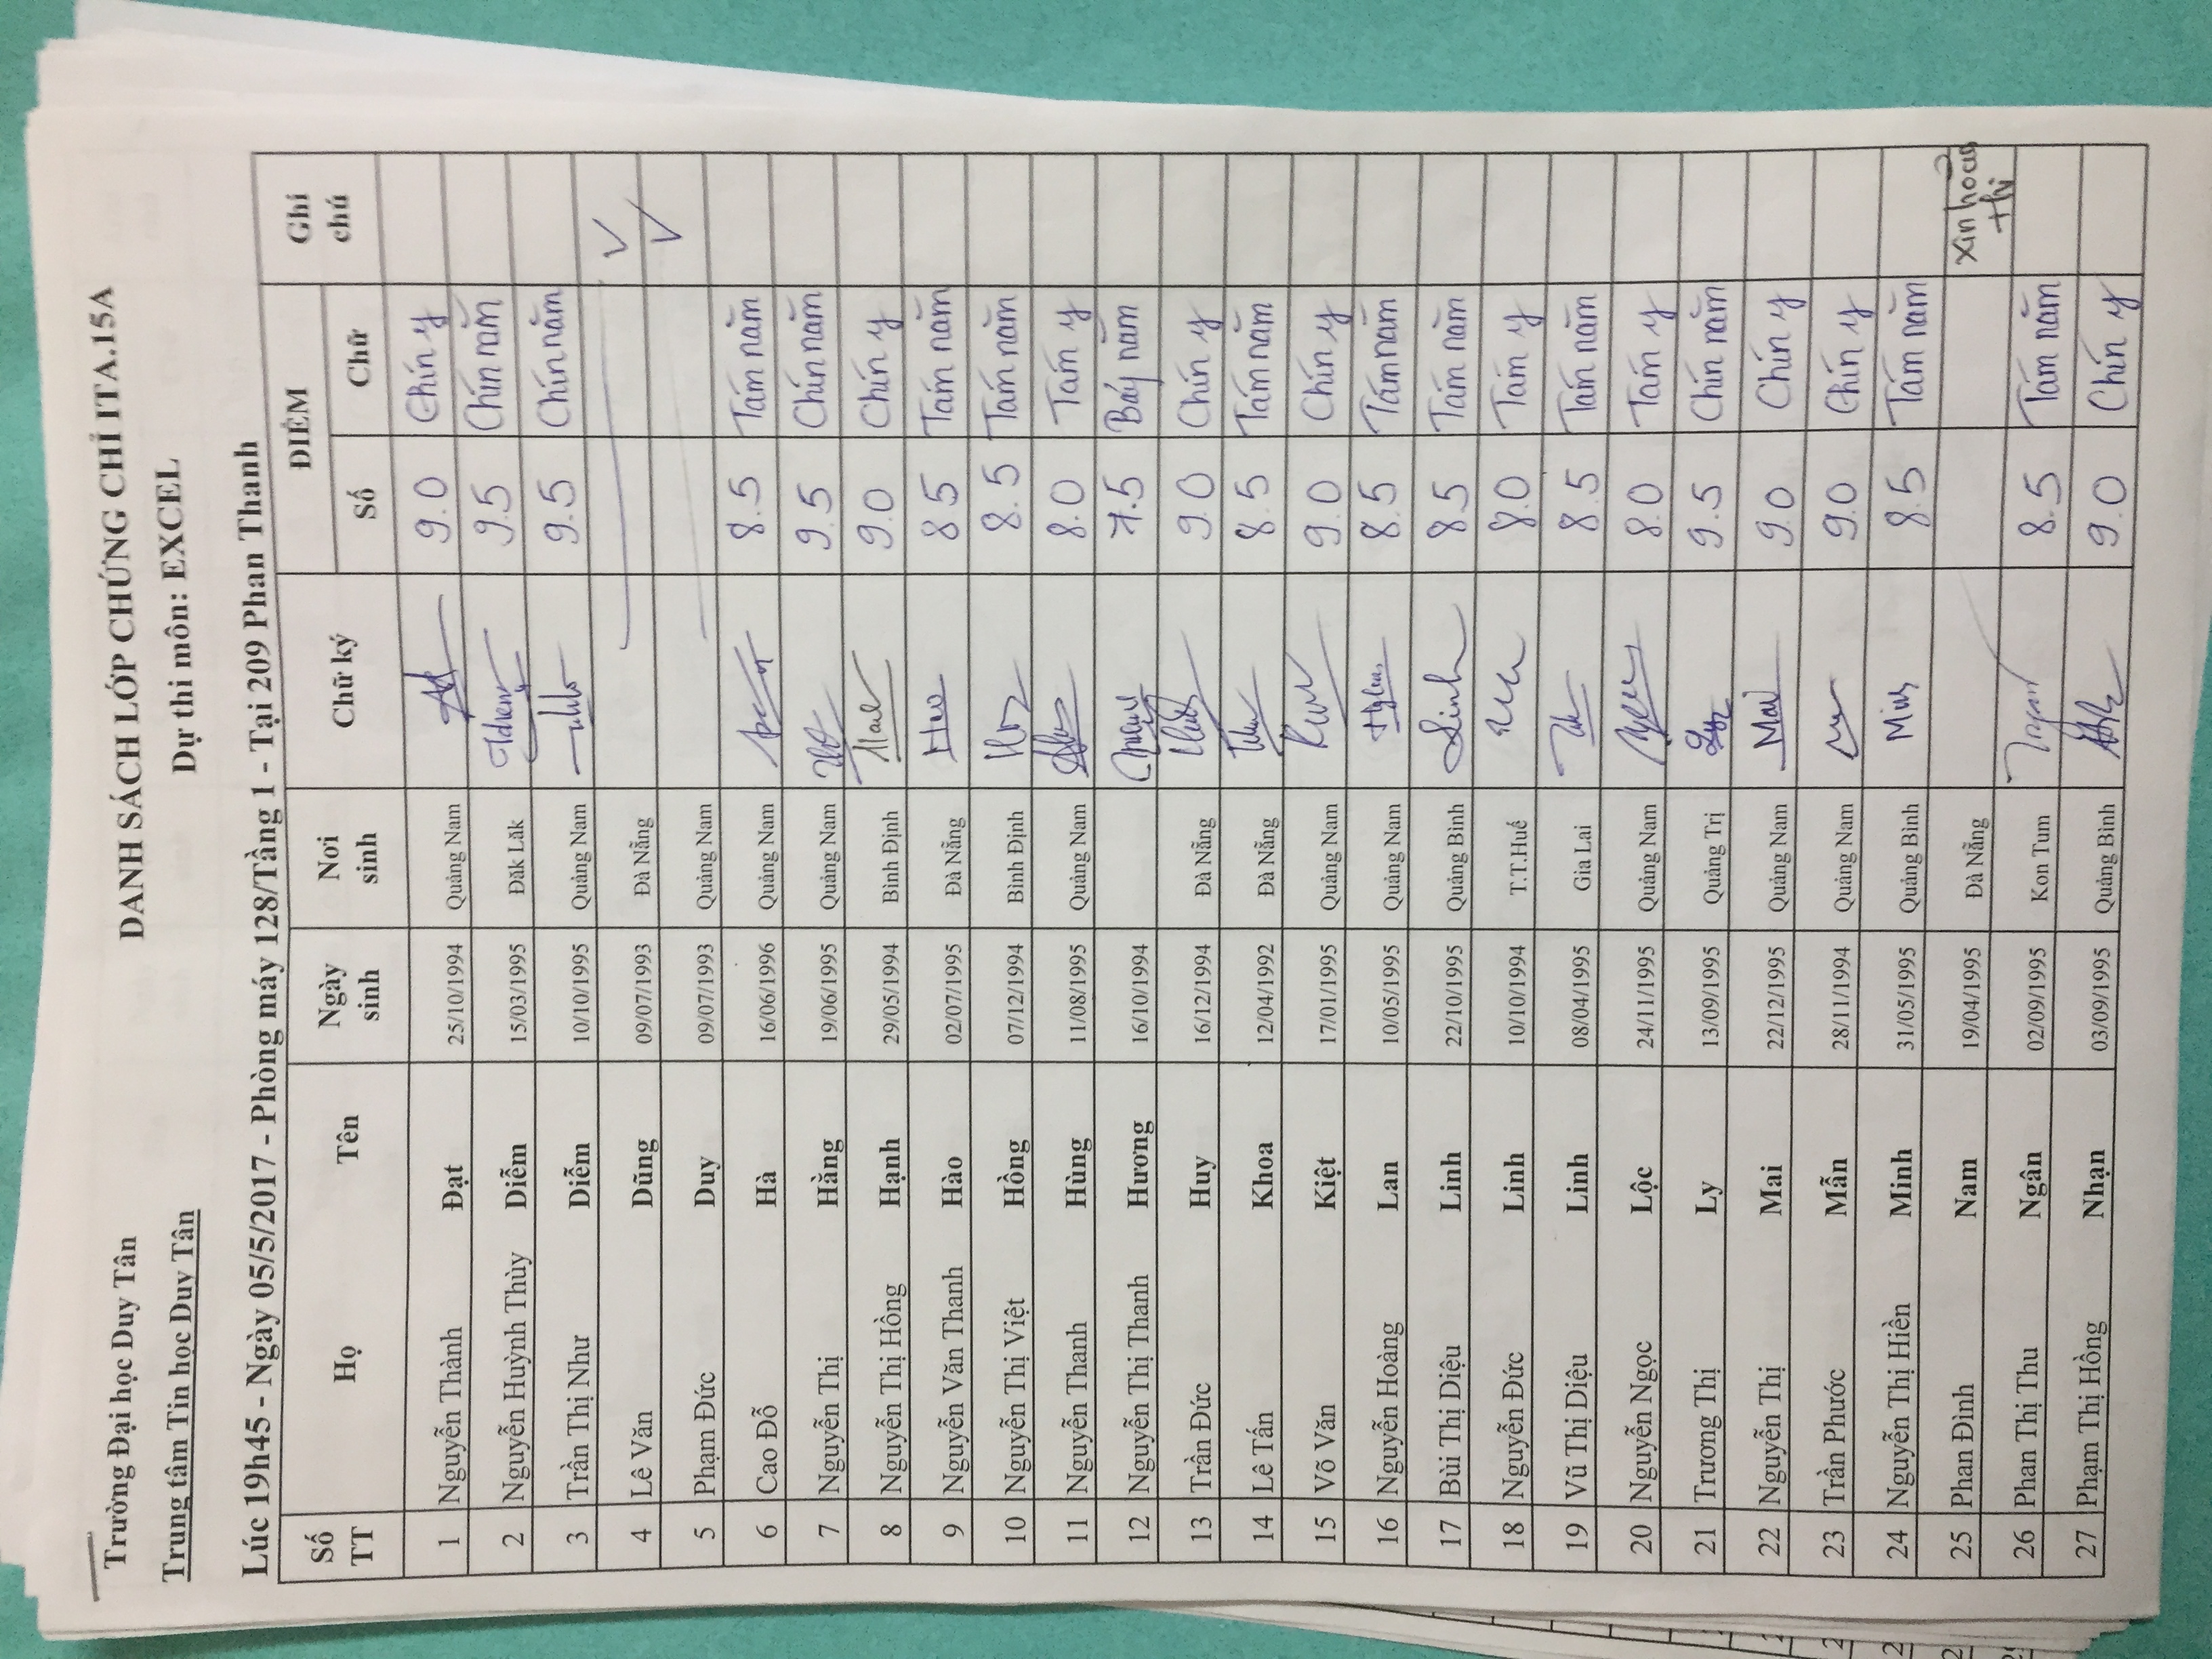 Trường Đại học Duy Tân
DANH SÁCH LỚP CHỨNG CHỈ ITA.15A
Trung tâm Tin học Duy Tân
Dự thi môn: EXCEL
Lúc 19h45 - Ngày 05/5/2017 - Phòng máy 128/Tầng 1 - Tại 209 Phan Thanh
Số TT Họ Tên Ngày sinh Nơi sinh Chữ ký ĐIỂM Ghi chú
Số Chữ
1 Nguyễn Thành Đạt 25/10/1994 Quảng Nam 9.0 Chín y
2 Nguyễn Huỳnh Thùy Diễm 15/03/1995 Đăk Lăk 9.5 Chín năm
3 Trần Thị Như Diễm 10/10/1995 Quảng Nam 9.5 Chín năm
4 Lê Văn Dũng 09/07/1993 Đà Nẵng V
5 Phạm Đức Duy 09/07/1993 Quảng Nam V
6 Cao Đỗ Hà 16/06/1996 Quảng Nam 8.5 Tám năm
7 Nguyễn Thị Hằng 19/06/1995 Quảng Nam 9.5 Chín năm
8 Nguyễn Thị Hồng Hạnh 29/05/1994 Bình Định 9.0 Chín y
9 Nguyễn Văn Thanh Hào 02/07/1995 Đà Nẵng Hao 8.5 Tám năm
10 Nguyễn Thị Việt Hồng 07/12/1994 Bình Định 8.5 Tám năm
11 Nguyễn Thanh Hùng 11/08/1995 Quảng Nam 8.0 Tám y
12 Nguyễn Thị Thanh Hương 16/10/1994 7.5 Bảy năm
13 Trần Đức Huy 16/12/1994 Đà Nẵng 9.0 Chín y
14 Lê Tấn Khoa 12/04/1992 Đà Nẵng 8.5 Tám năm
15 Võ Văn Kiệt 17/01/1995 Quảng Nam 9.0 Chín y
16 Nguyễn Hoàng Lan 10/05/1995 Quảng Nam 8.5 Tám năm
17 Bùi Thị Diệu Linh 22/10/1995 Quảng Bình Linh 8.5 Tám năm
18 Nguyễn Đức Linh 10/10/1994 T.T.Huế 8.0 Tám y
19 Vũ Thị Diệu Linh 08/04/1995 Gia Lai 8.5 Tám năm
20 Nguyễn Ngọc Lộc 24/11/1995 Quảng Nam 8.0 Tám y
21 Trương Thị Ly 13/09/1995 Quảng Trị 9.5 Chín năm
22 Nguyễn Thị Mai 22/12/1995 Quảng Nam Mai 9.0 Chín y
23 Trần Phước Mẫn 28/11/1994 Quảng Nam 9.0 Chín y
24 Nguyễn Thị Hiền Minh 31/05/1995 Quảng Bình Minh 8.5 Tám năm
25 Phan Đình Nam 19/04/1995 Đà Nẵng xin hoãn thi
26 Phan Thị Thu Ngân 02/09/1995 Kon Tum 8.5 Tám năm
27 Phạm Thị Hồng Nhạn 03/09/1995 Quảng Bình 9.0 Chín y